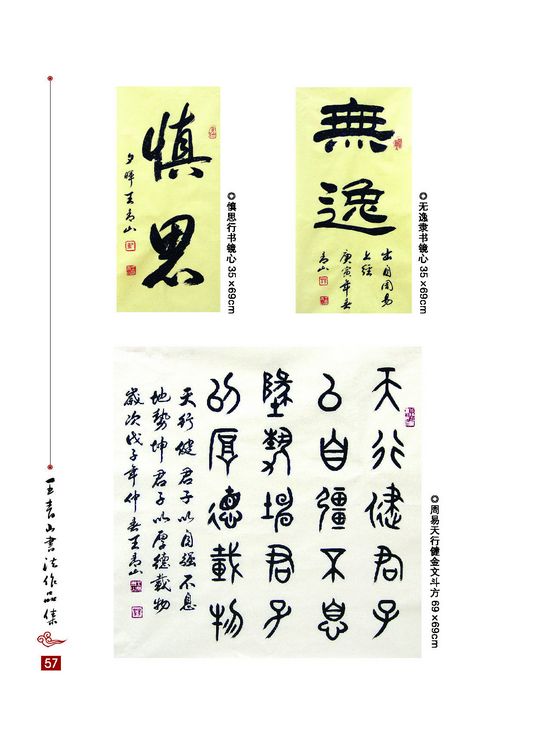 慎思
夕暉王青山
◎慎思行书镜心 35×69cm
無逸
出自周易
上经
庚寅年春
青山
◎无逸隶书镜心 35×69cm
天行健君子
以自彊不息
墬勢坤君子
以厚德載物
天行健君子以自强不息
地勢坤君子以厚德載物
歲次戊子年仲春王青山
◎周易天行健金文斗方 69×69cm
王青山書法作品集
57